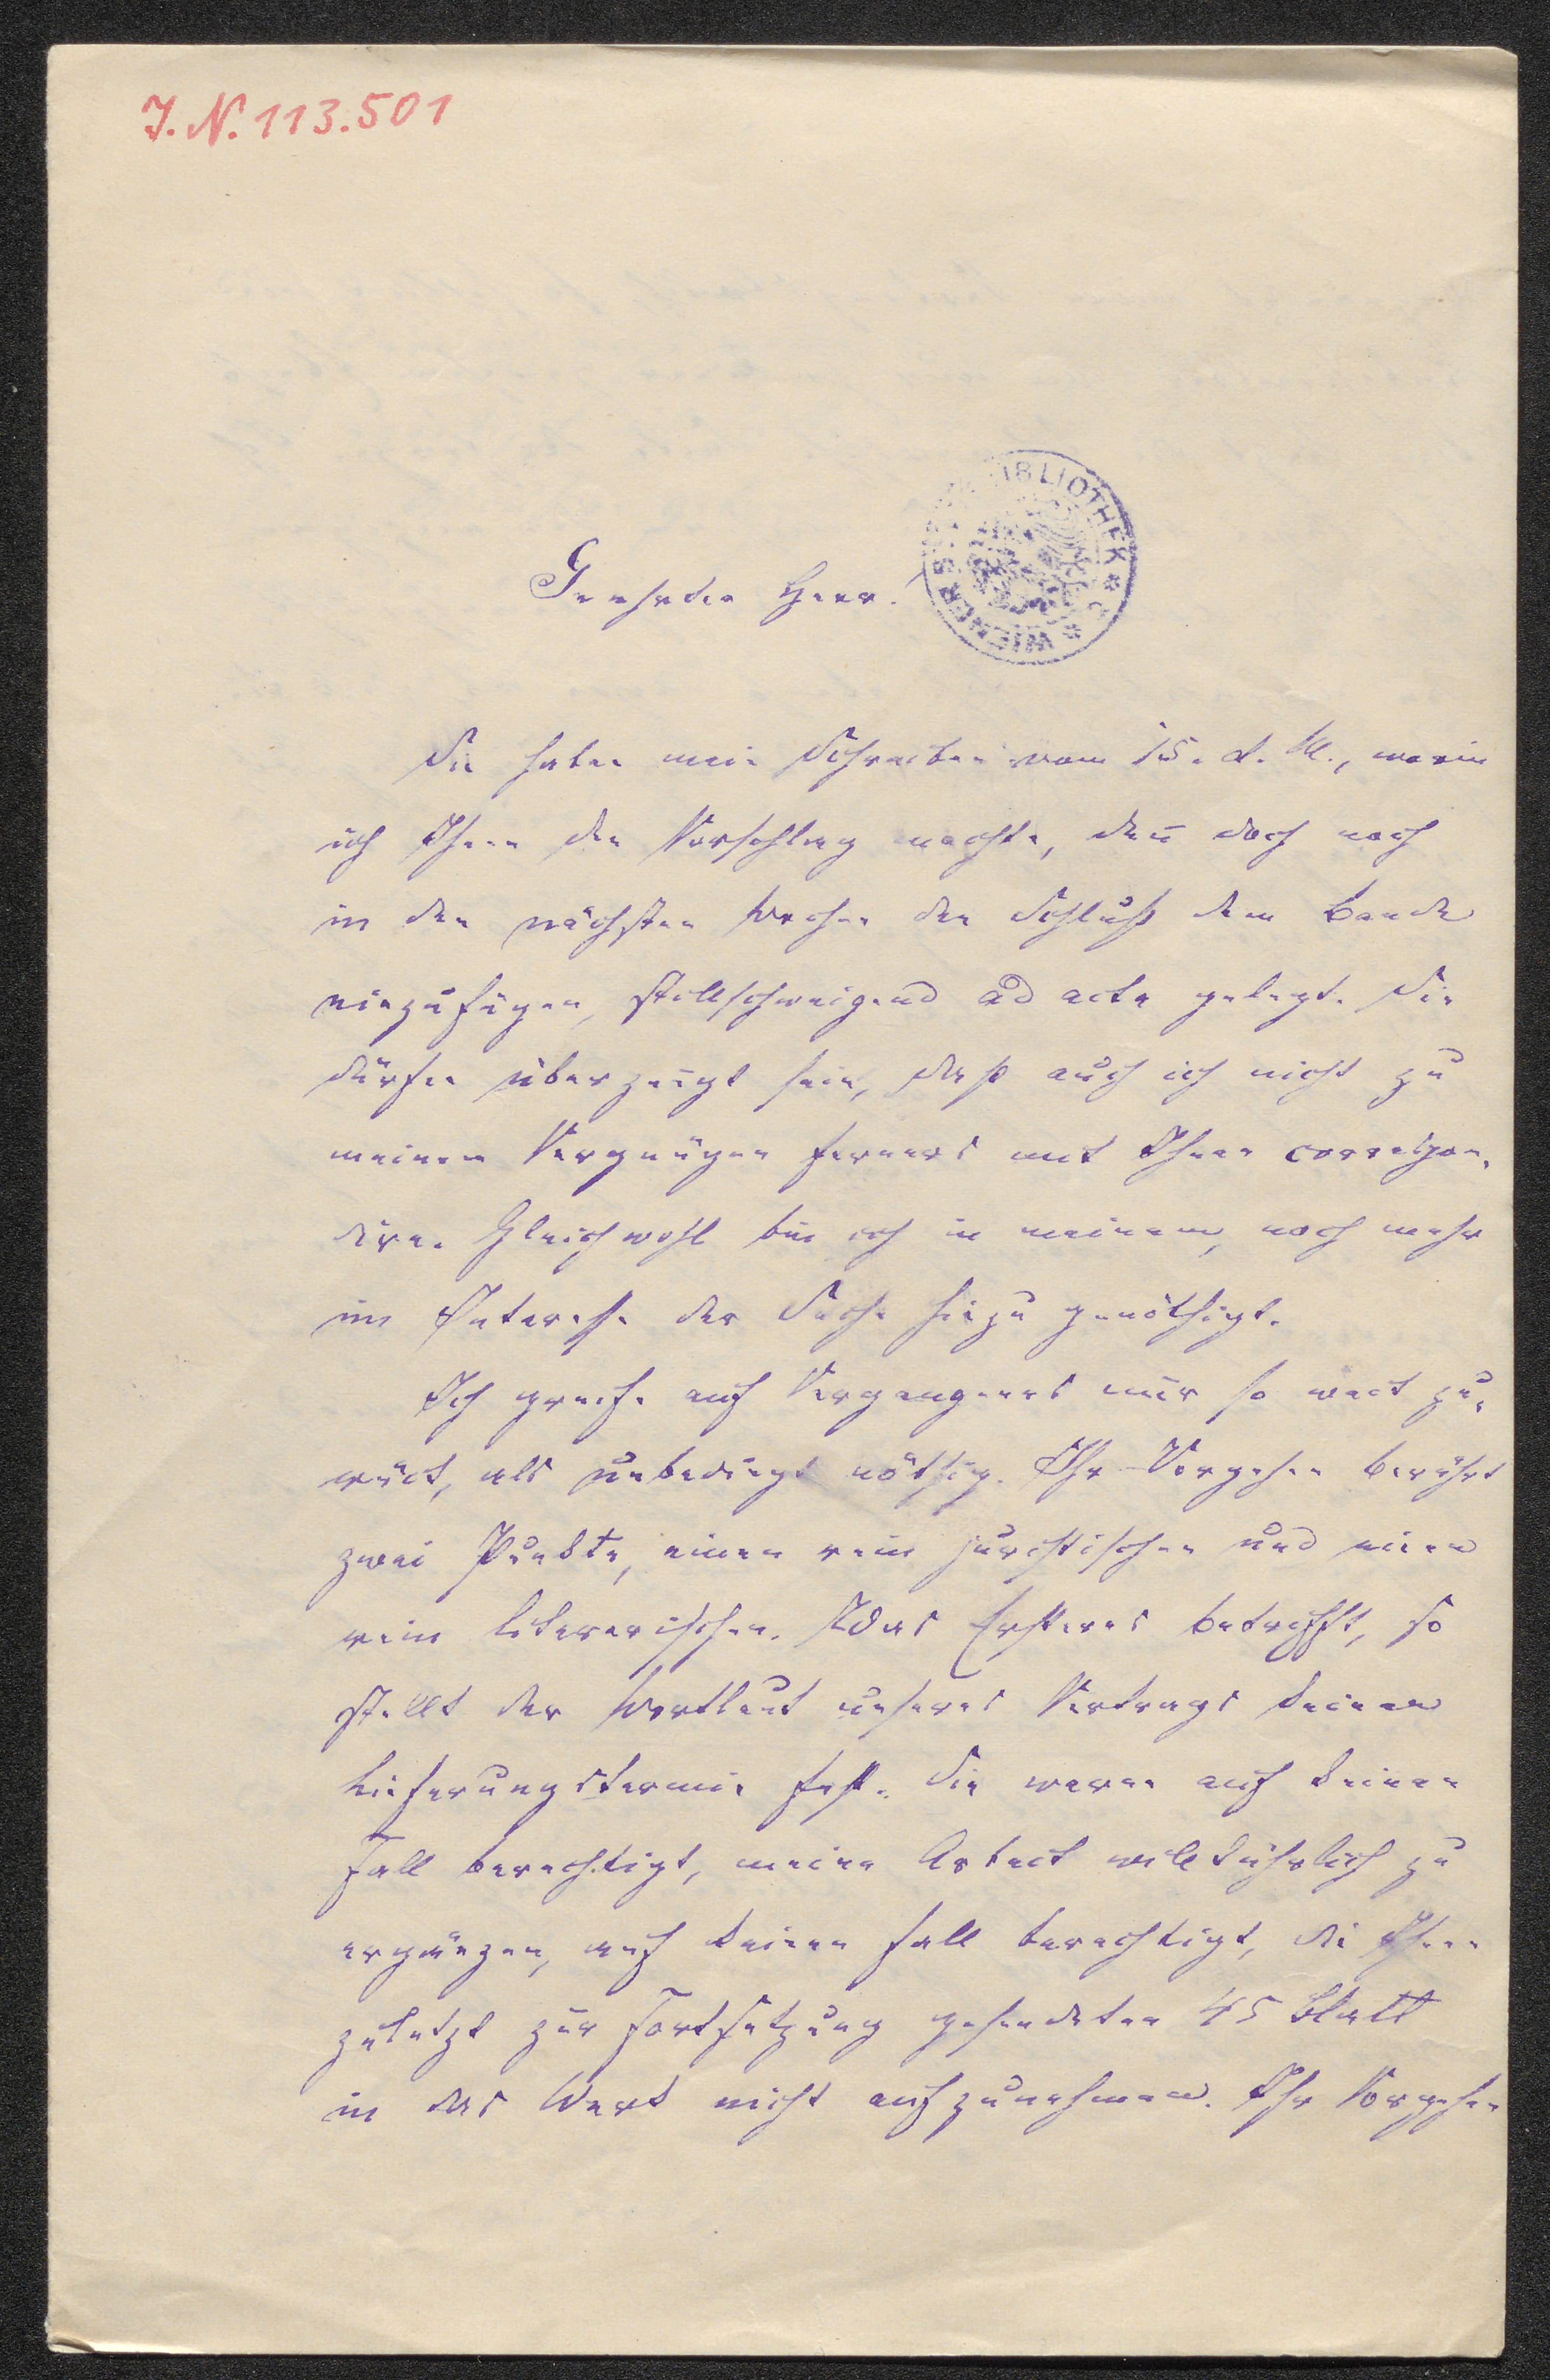 J. N. 113.501
WIENER STADTBIBLIOTHEK
Geehrter Herr!
Sie haben mein Schreiben vom 15. d. M., worin
ich Ihnen den Vorschlag machte, denn doch noch
in den nächsten Wochen den Schluß dem Bande
einzufügen, stillschweigend ad acta gelegt. Sie
dürfen überzeugt sein, daß auch ich nicht zu
meinem Vergnügen ferners mit Ihnen correspon-
dire. Gleichwohl bin ich in meinem, noch mehr
im Interesse der Sache hiezu genöthigt.
Ich greife auf Vergangenes nur so weit zu-
rück, als unbedingt nöthig. Ihr Vorgehen berührt
zwei Punkte, einen rein juristischen und einen
rein literarischen. Was Ersteres betrifft, so
stellt der Wortlaut unseres Vertrags keinen
Lieferungstermin fest. Sie waren auf keinen
Fall berechtigt, meine Arbeit willkührlich zu
ergänzen, auf keinen Fall berechtigt, die Ihnen
zuletzt zur Fortsetzung gesendeten 45 Blatt
in das Werk nicht aufzunehmen. Ihr Vorgehen